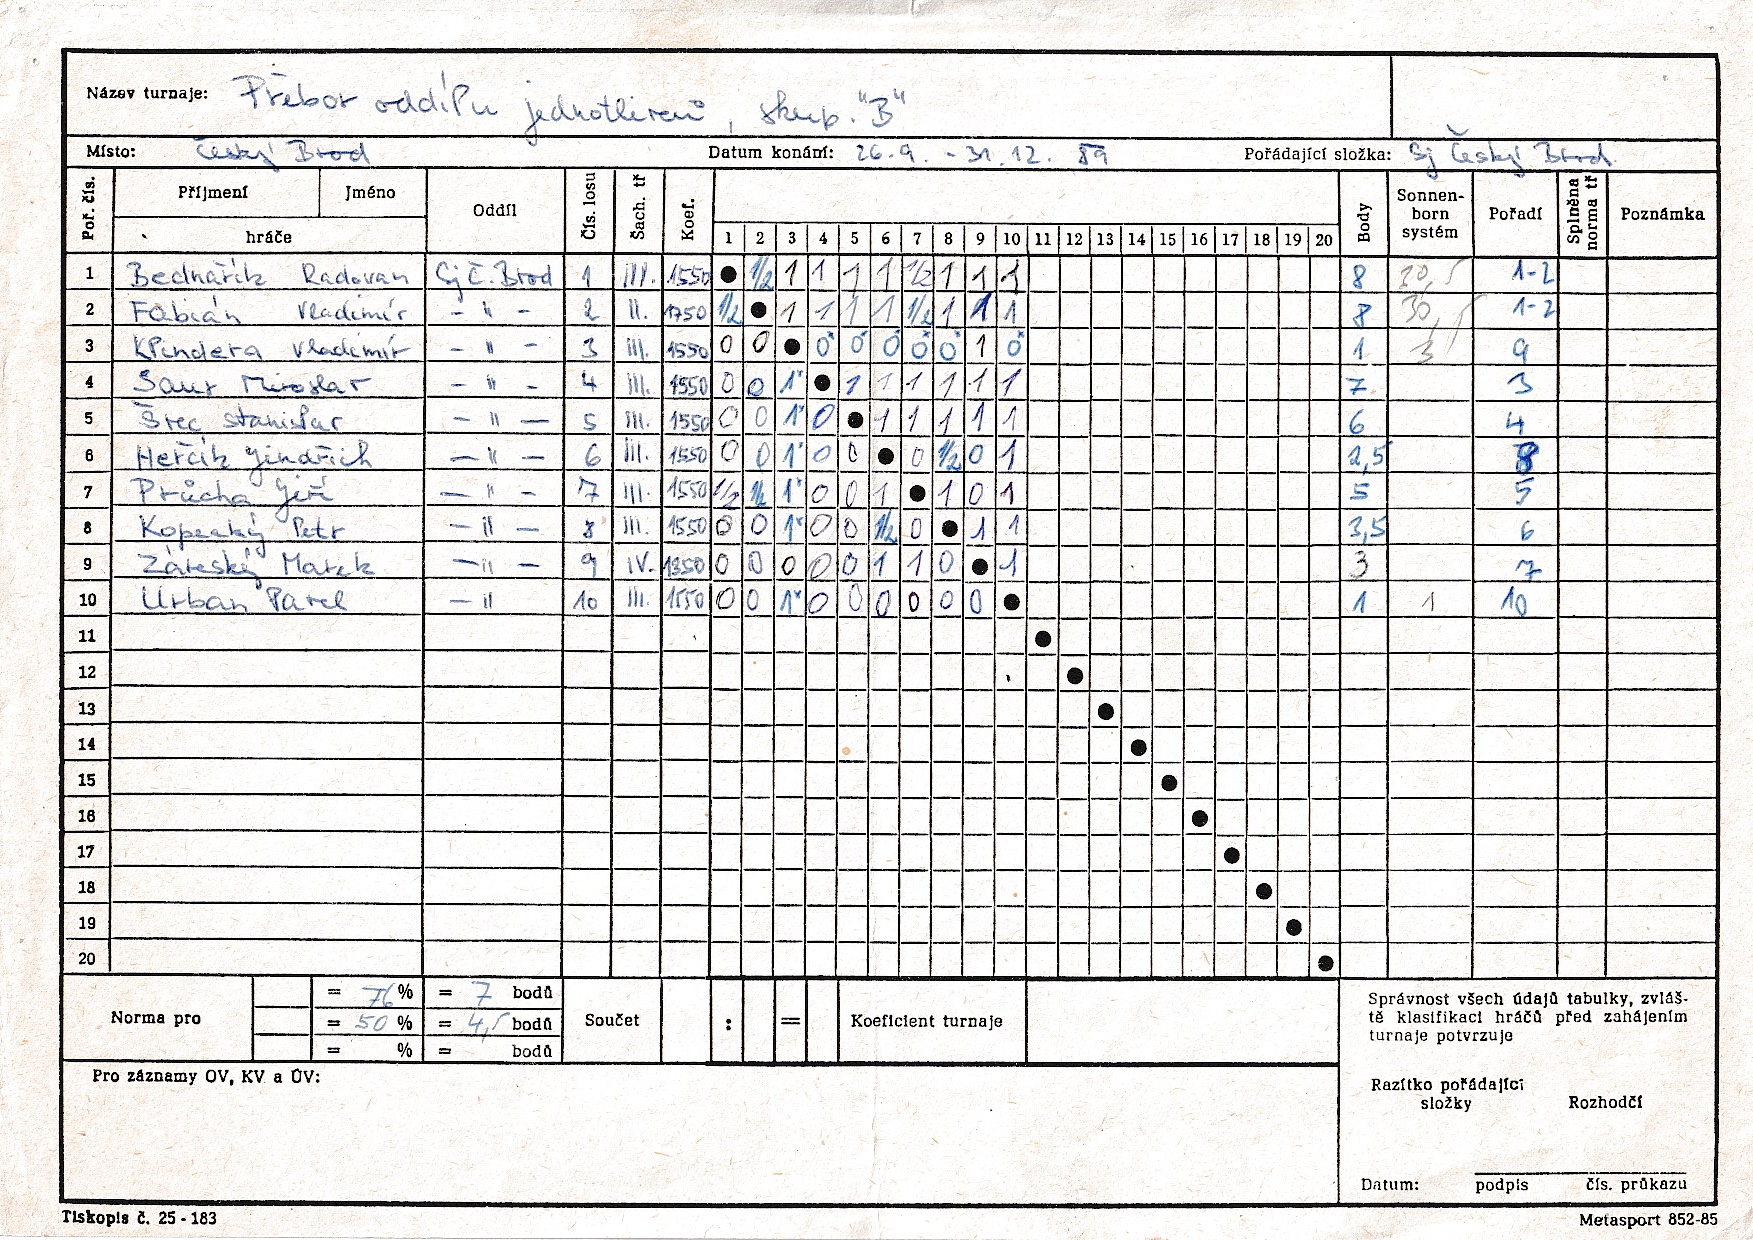 Název turnaje: Přebor oddílu jednotlivců, skup. "B"
Místo: Český Brod Datum konání: 26.9. - 31.12. 89 Pořádající složka: Sj Český Brod
Poř. čís. Příjmení Jméno hráče Oddíl Čís. losu Šach. tř Koef. 1 2 3 4 5 6 7 8 9 10 11 12 13 14 15 16 17 18 19 20 Body Sonnenborn systém Pořadí Splněna norma tř Poznámka
1 Bednářík Radovan Sj Č. Brod 1 III. 1550 ● 1/2 1 1 1 1 1/2 1 1 1 8 30,5 1-2
2 Fabián Vladimír - " - 2 II. 1750 1/2 ● 1 1 1 1 1/2 1 1 1 8 30,5 1-2
3 Klindera Vladimír - " - 3 III. 1550 0 0 ● 0* 0* 0* 0* 0* 1 0* 1 3 9
4 Saur Miroslav - " - 4 III. 1550 0 0 1* ● 1 1 1 1 1 1 7 3
5 Šrec Stanislav - " - 5 III. 1550 0 0 1* 0 ● 1 1 1 1 1 6 4
6 Herčík Jindřich - " - 6 III. 1550 0 0 1* 0 0 ● 0 1/2 0 1 2,5 8
7 Průcha Jiří - " - 7 III. 1550 1/2 1/2 1* 0 0 1 ● 1 0 1 5 5
8 Kopecký Petr - " - 8 III. 1550 0 0 1* 0 0 1/2 0 ● 1 1 3,5 6
9 Záreský Marek - " - 9 IV. 1350 0 0 0 0 0 1 1 0 ● 1 3 7
10 Urban Pavel - " 10 III. 1550 0 0 1* 0 0 0 0 0 0 ● 1 1 10
11 ●
12 ●
13 ●
14 ●
15 ●
16 ●
17 ●
18 ●
19 ●
20 ●
Norma pro = 76 % = 7 bodů
= 50 % = 4,5 bodů
= % = bodů
Součet : = Koeficient turnaje
Správnost všech údajů tabulky, zvláš-
tě klasifikaci hráčů před zahájením
turnaje potvrzuje
Pro záznamy OV, KV a ÚV:
Razítko pořádající
složky Rozhodčí
Datum: podpis čís. průkazu
Tiskopis č. 25 - 183 Metasport 852-85